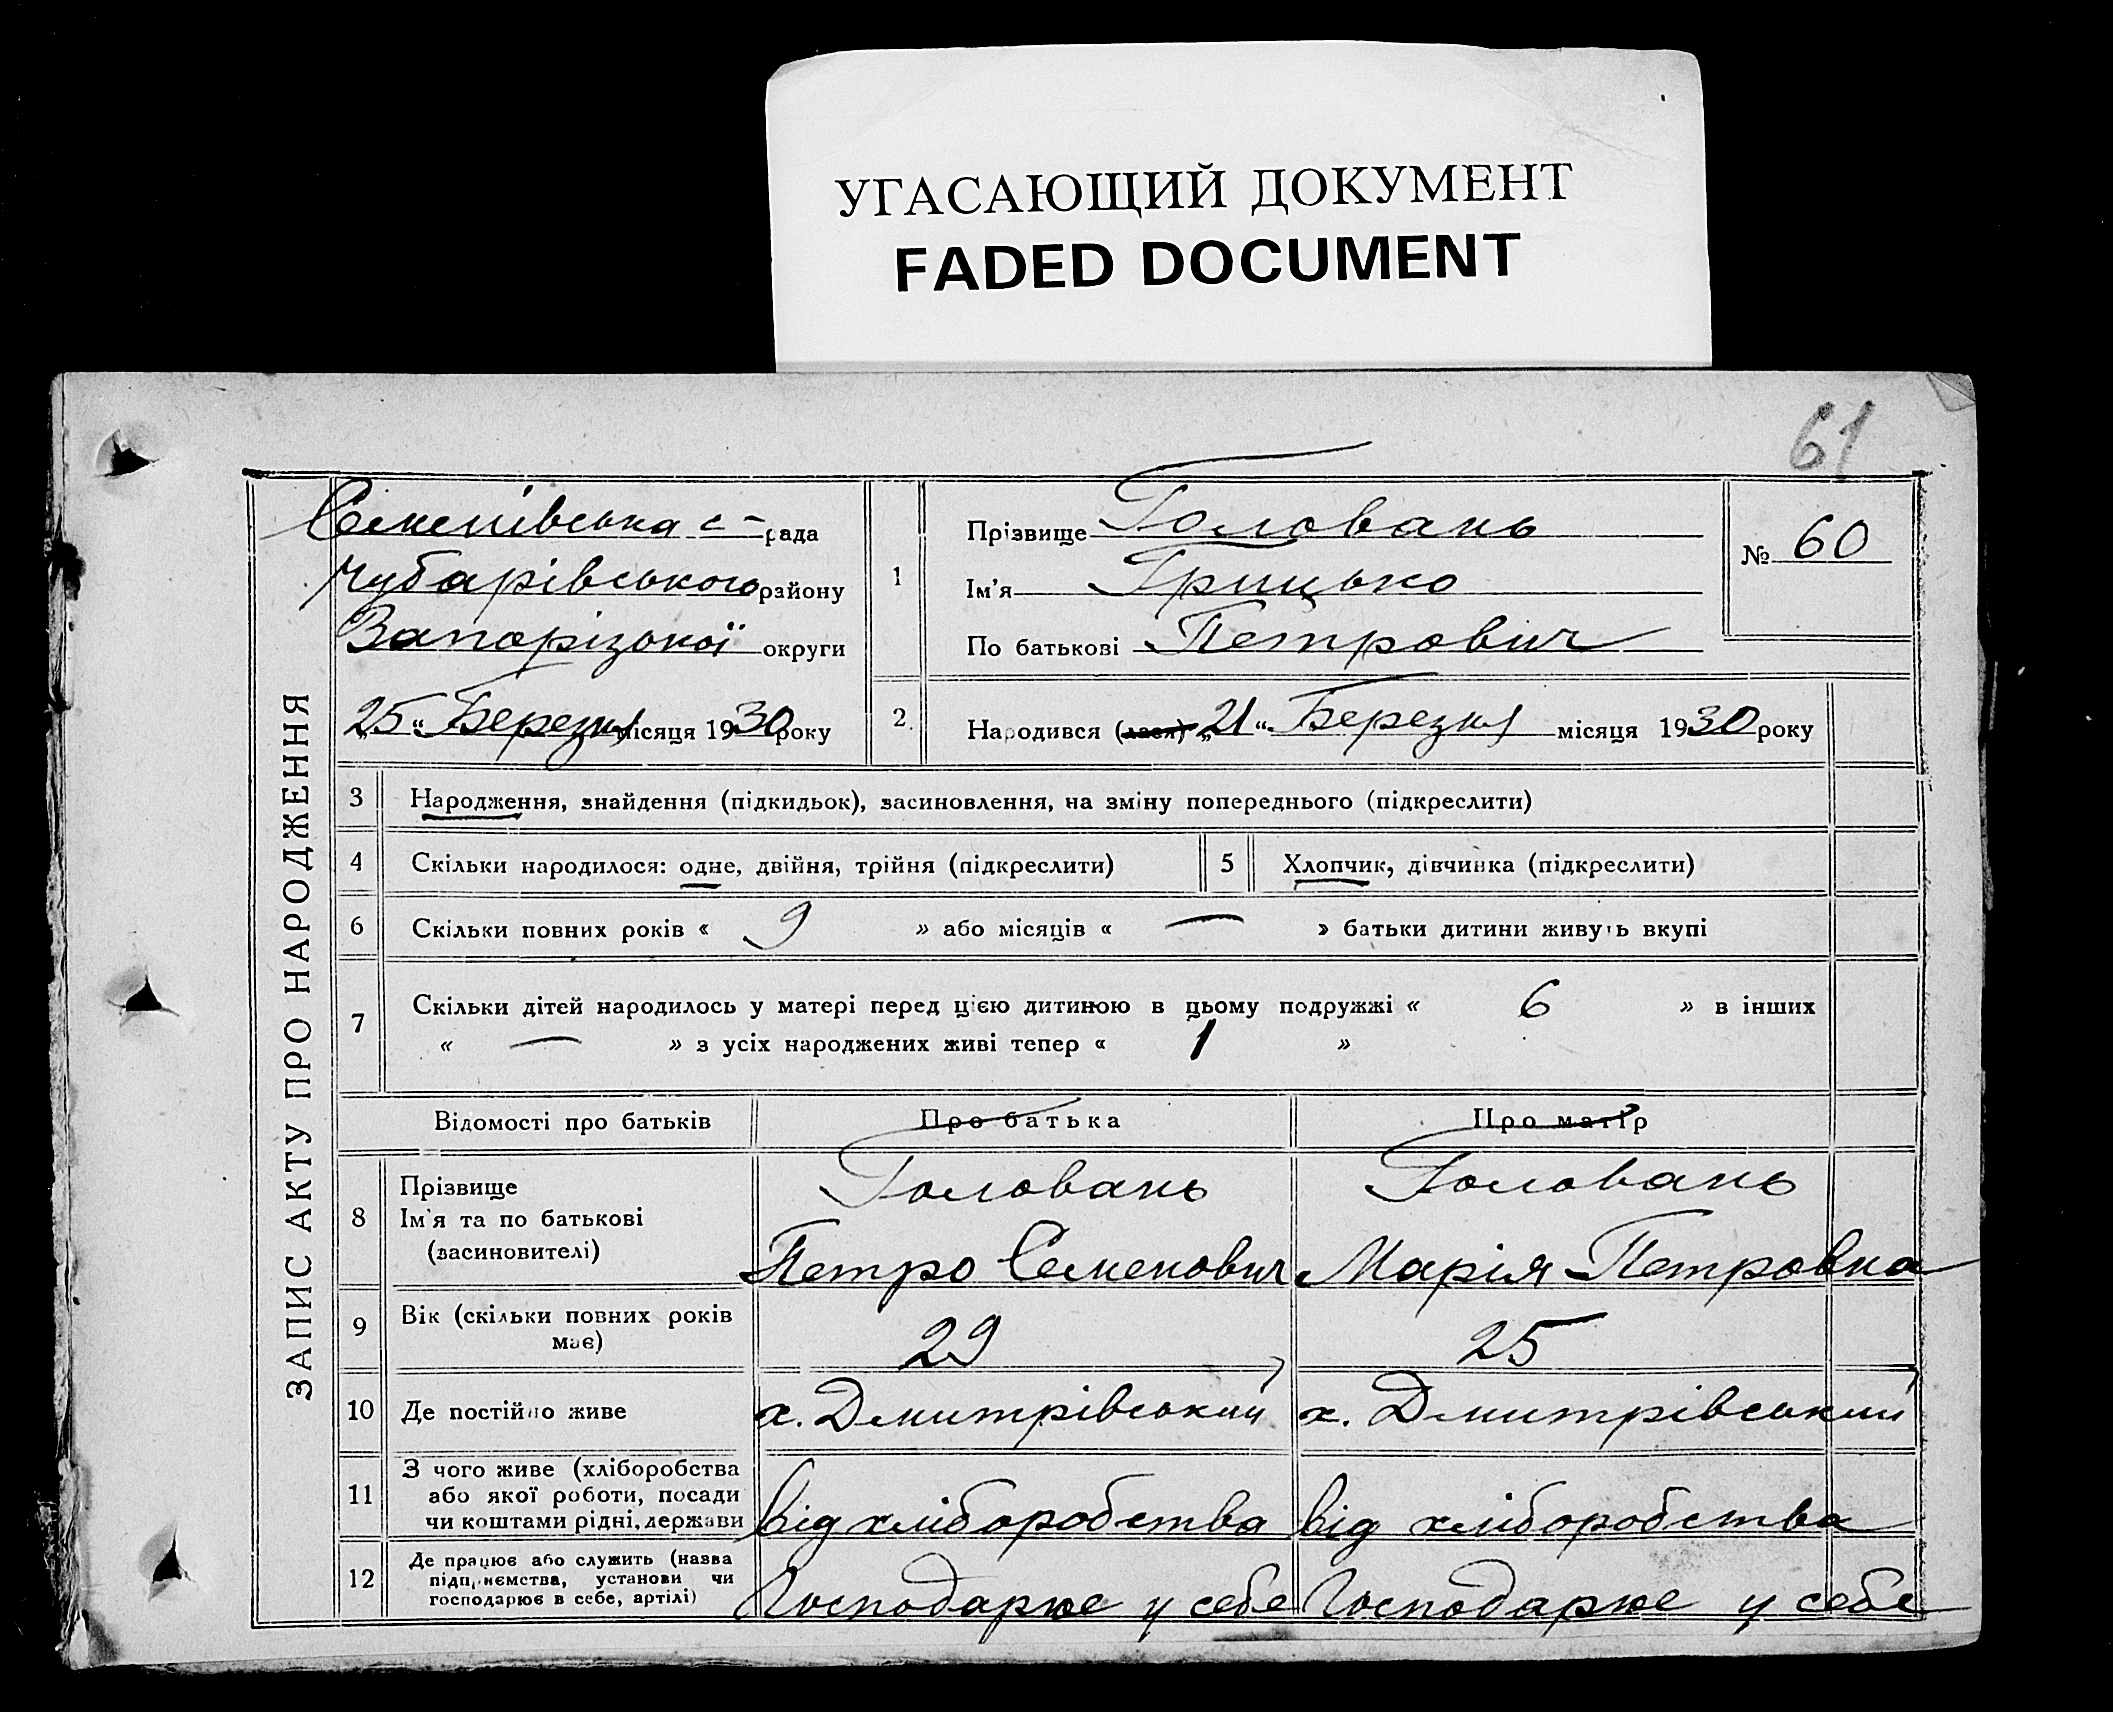 УГАСАЮЩИЙ ДОКУМЕНТ
FADED DOCUMENT
61
ЗАПИС АКТУ ПРО НАРОДЖЕННЯ
Семенівська с - рада
Чубарівського району
Запорізської округи
„25“ Березня місяця 1930 року
1
Прізвище Головань
Ім'я Грицько
По батькові Петрович
№ 60
2. Народився (лася) „21“ Березня місяця 1930 року
3 Народження, знайдення (підкидьок), засиновлення, на зміну попереднього (підкреслити)
4 Скільки народилося: одне, двійня, трійня (підкреслити) 5 Хлопчик, дівчинка (підкреслити)
6 Скільки повних років « 9 » або місяців « — » батьки дитини живуть вкупі
7 Скільки дітей народилось у матері перед цією дитиною в цьому подружжі « 6 » в інших
« — » з усіх народжених живі тепер « 1 »
Відомості про батьків Про батька Про матір
8 Прізвище Головань Головань
Ім'я та по батькові Петро Семенович Марія Петровна
(засиновителі)
9 Вік (скільки повних років має) 29 25
10 Де постійно живе х. Дмитрівський х. Дмитрівський
11 З чого живе (хліборобства
або якої роботи, посади
чи коштами рідні, держави від хліборобства від хліборобства
12 Де працює або служить (назва
підприємства, установи чи
господарює в себе, артілі) Господарює у себе Господарює у себе